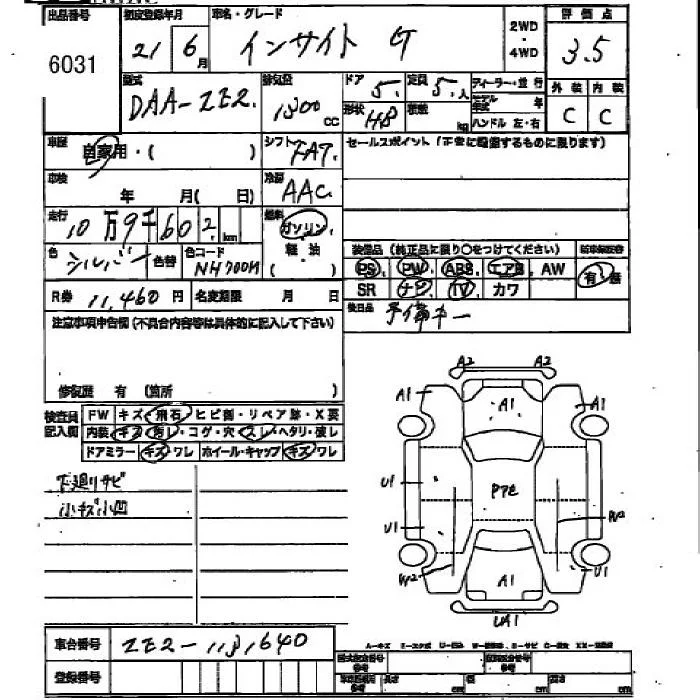 出品番号 初度登録年月 車名・グレード 評価点
6031 21年 6月 インサイト G 2WD・4WD 3.5
型式 排気量 ドア 定員 ディーラー・並行 外装 内装
DAA-ZE2. 1300cc 5. 5.人 モデル年式 年 C C
形状 HB 積載 kg ハンドル 左・右
車歴 自家用・( ) シフト FAT. セールスポイント (正常に機能するものに限ります)
車検 年 月( 日) 冷房 AAC
走行 10万9千602km 燃料 ガソリン 軽・油 ( )
装備品 (純正品に限り○をつけてください)
色 シルバー 色替 色コード NH700M PS, PW, ABS, エアB, AW 有・無
R券 11,460円 名変期限 月 日 SR ナビ, TV, カワ
注意事項申告欄(不具合内容等は具体的に記入して下さい) 後日品 予備キー
修復歴 有 (箇所 )
検査員記入欄 FW キズ・飛石・ヒビ割・リペア跡・X要
内装 キズ・汚レ・コゲ・穴・スレ・ヘタリ・破レ
ドアミラー キズ・ワレ ホイール・キャップ キズ・ワレ
下廻りサビ
小キズ小凹
A2 A2
A1 A1 A1
U1
U1
W2 A1 U1
UA1
車台番号 ZE2-1131640
登録番号
長さ cm 幅 cm 高さ cm